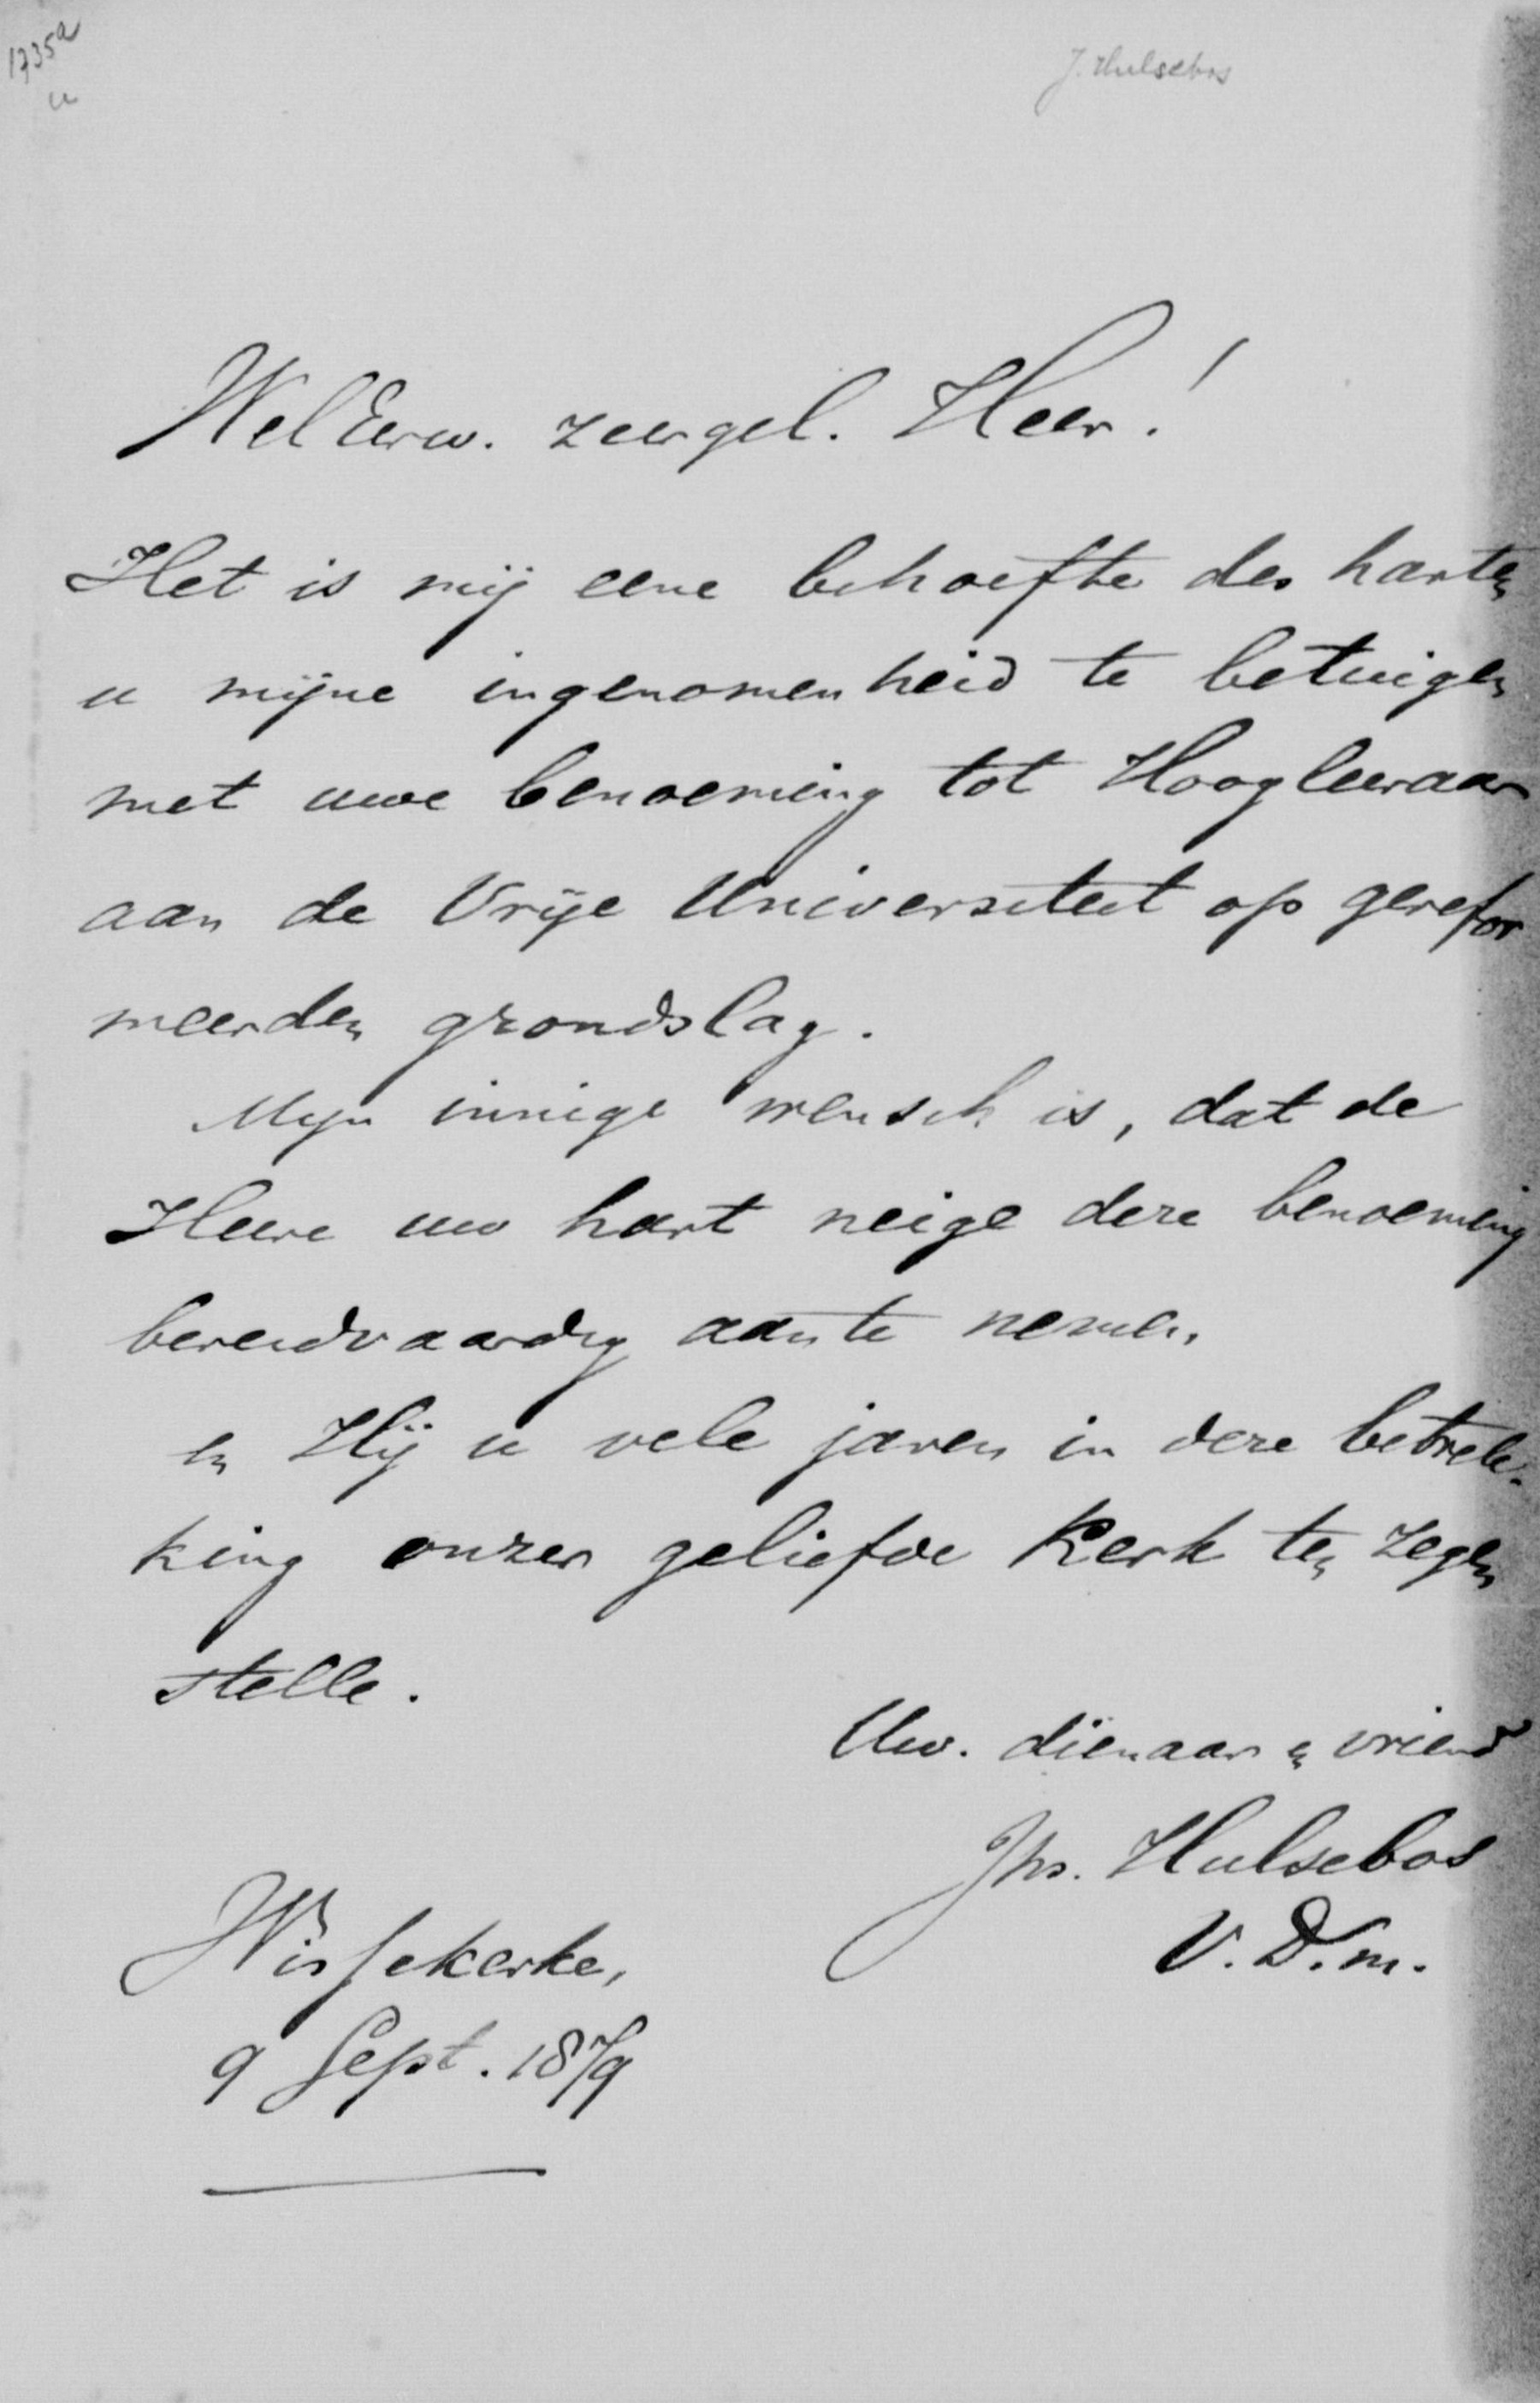 1735a
u
J. Hulsebos
WelEerw. zeergel. Heer!
Het is mij eene behoefte des harten
u mijne ingenomenheid te betuigen
met uwe benoeming tot Hoogleeraar
aan de Vrije Universiteit op gerefor
meerden grondslag.
Mijn innige wensch is, dat de
Heere uw hart neige deze benoeming
bereidvaardig aan te nemen,
en Hij u vele jaren in deze betrek-
king onzer geliefde Kerk ten zegen
stelle.
Uw. dienaar en vriend
Jhs. Hulsebos
V. D. m.
Wissekerke,
9 Sept. 1879